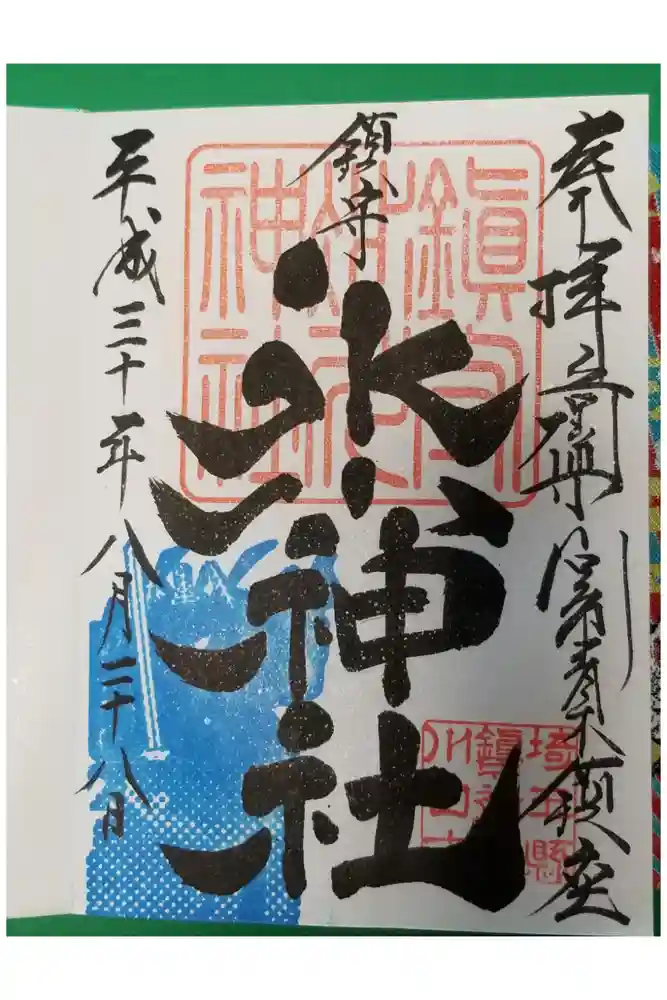 奉拝
青木鎮座
鎮守
氷川神社
平成三十年八月二十八日
鎮守氷川神社
埼玉縣
川口市